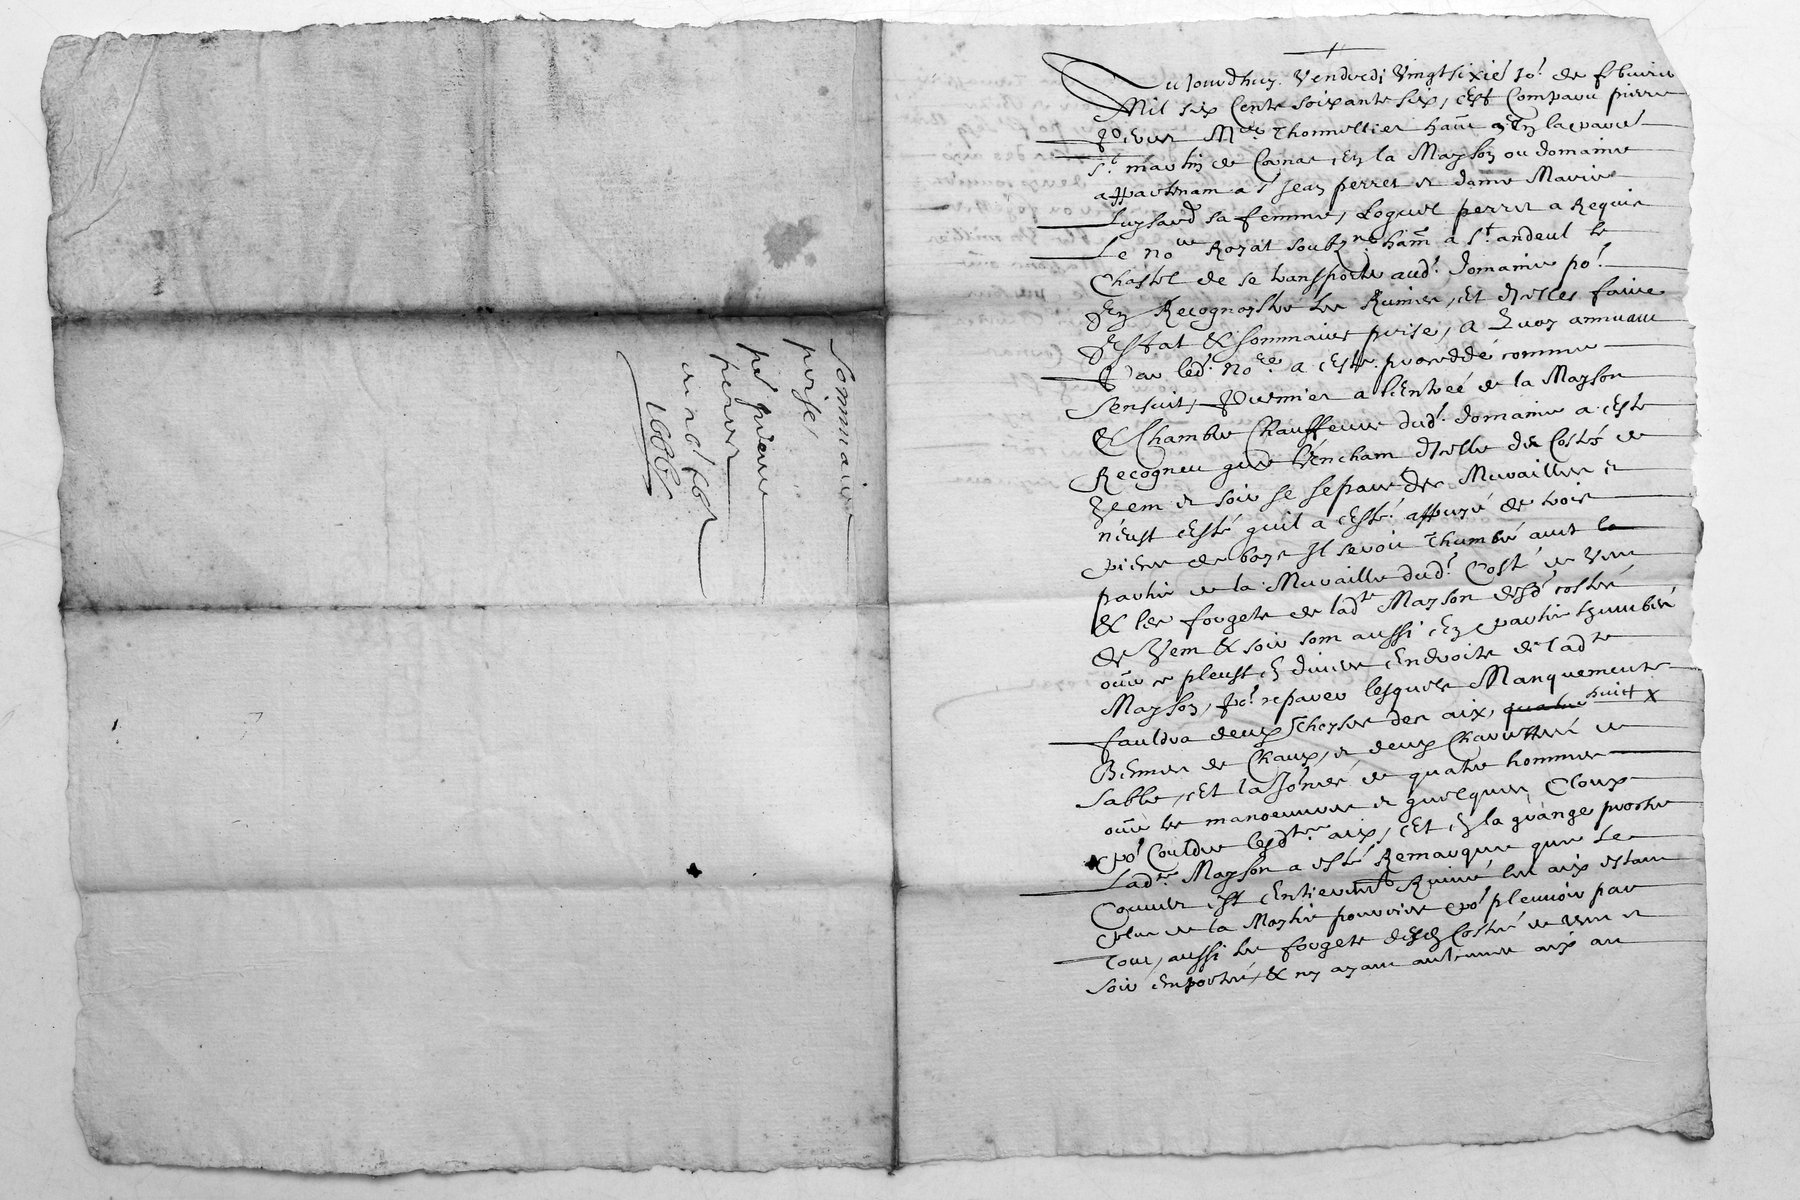 Sommaire
prise
po.r pierre
perret
du 26 feb.r
1666
Aujourdhuy Vendredi Vingtsixie jo.r de febvrier
Mil six Cents soixante six, est Comparu pierre
M.re Thonnellier hant en la paroe
S.t martin de Cornas en la Mayson ou domaine
appartenam a s.r Jean perret et dame Marie
Luysard sa femme, Loquel perret a Requis
Le no.re Royal soubz.ne ham a S.t andeul le
Chastel de se transporter aud.t domaine po.r
En Recognoystre les Ruines, et dicelles faire
Estat & sommaire prise, a quoy annuam
Par led.t No.re a este procedde comme
Sensuit, premier a lentree de la Mayson
& Chambre Chauffeure dud.t domaine a este
Recogneu que dicelle des Costes de
Vem et soir se separe des Murailles et
neust este quil a este appuye de trois
pieces de boys Il seroit Thumbe avec la
partie de la Muraille dud.t Coste de Vem
& les forgets de lad.te Mayson desd costes
de Vem & soir som aussi en partie thumbes
ou il pleust en divers endroits de lad.te
Mayson, po.r reparer lesquels Manquements
fauldra deux Thoyses des aix, quatre huict x
Bennes de Chaux, et deux Charettees de
Sable, et la Jornee de quatre hommes
ou les manoeuvres et quelques Cloux
po.r Couldre lesd.ts aix, et en la grange proche
Lad.te Mayson a este Remarque que le
Couvert est Entierem.t Ruine les aix estam
de la Moytie pourries po.r pleuvoir par
Tout, aussi les forgets desd Costes de Vem et
soir emportes, & ny ayam aulcunes aix au